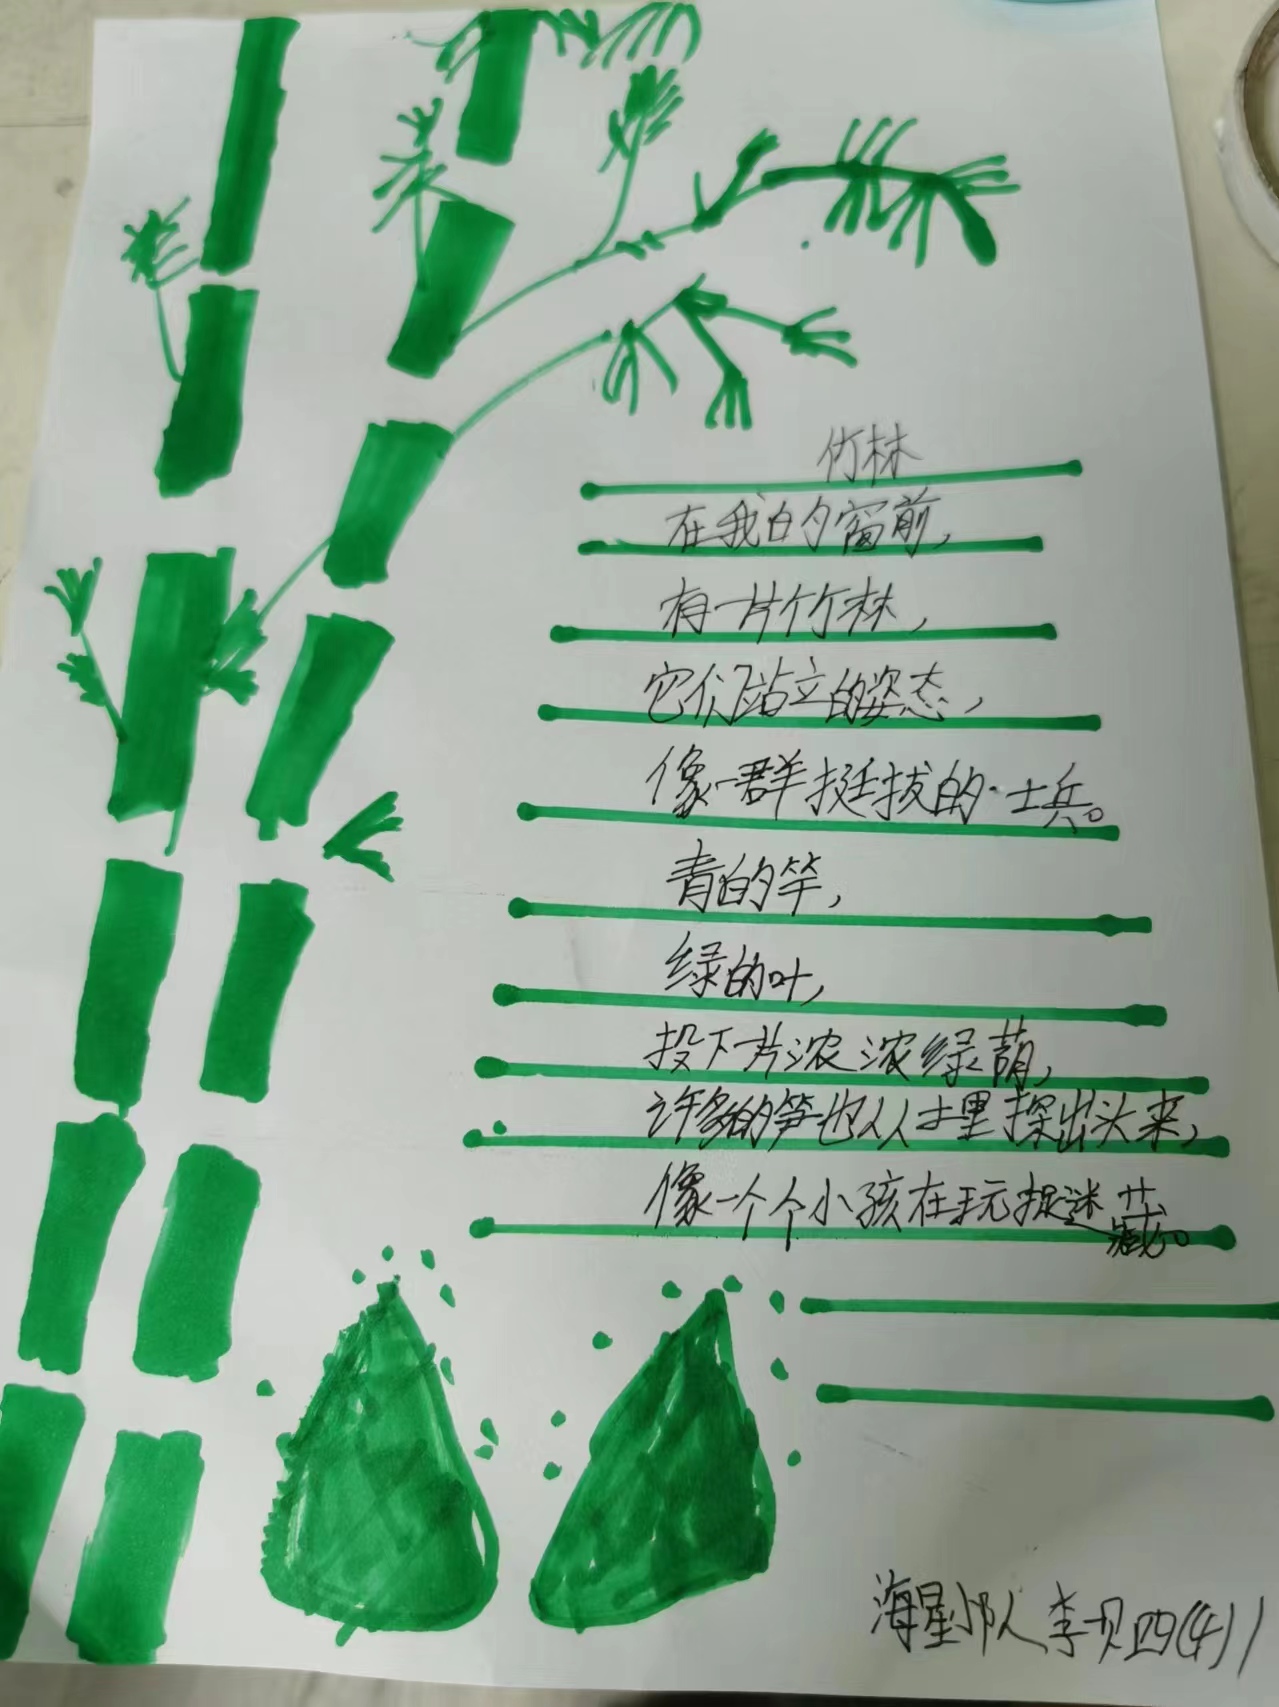 竹林
在我的窗前，
有一片竹林，
它们站立的姿态，
像一群挺拔的士兵。
青的竿，
绿的叶，
投下片浓浓绿荫，
许多的笋也从土里探出头来，
像一个个小孩在玩捉迷藏。
海星小队 李贝 四(4) 1